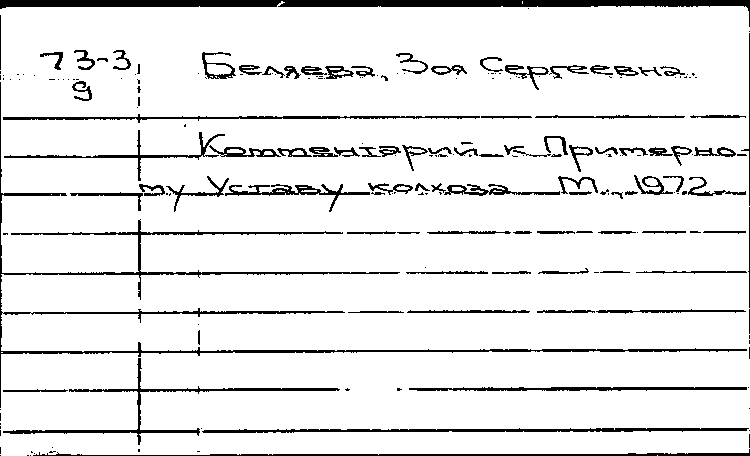 73-3
9
Беляева, Зоя Сергеевна.
Комментарий к Примерно-
му Уставу колхоза М., 1972.